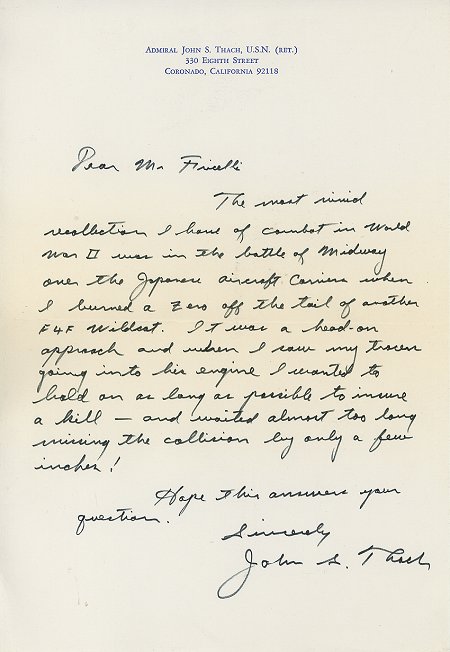 ADMIRAL JOHN S. THACH, U.S.N. (RET.)
330 EIGHTH STREET
CORONADO, CALIFORNIA 92118
Dear Mr
The most vivid
recollection I have of combat in World
War II was in the battle of Midway
over the Japanese aircraft carriers when
I burned a Zero off the tail of another
F4F Wildcat. It was a head-on
approach and when I saw my tracers
going into his engine I wanted to
hold on as long as possible to insure
a kill — and waited almost too long
missing the collision by only a few
inches!
Hope this answers your
question.
Sincerely
John S. Thach